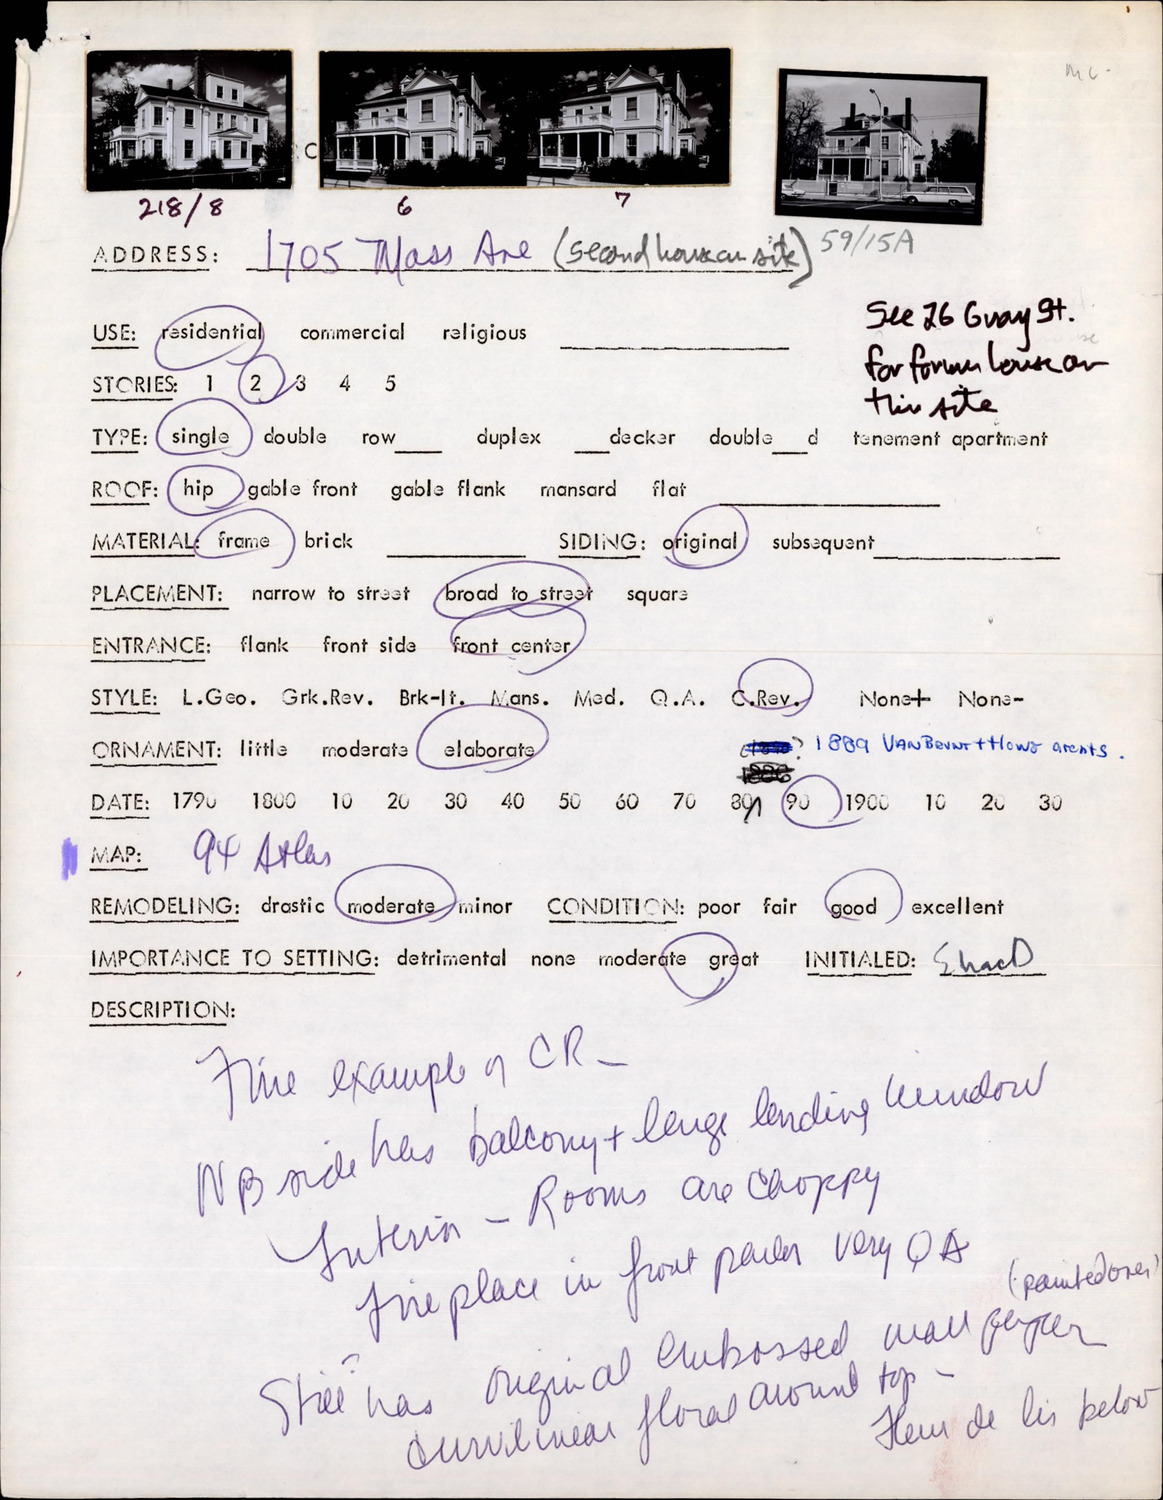 M C -
C
218/8 6 7
59/15A
ADDRESS: 1705 Mass Ave (second house on site)
See 26 Gray St.
for former house on
this site
USE: residential commercial religious
STORIES: 1 2 3 4 5
TYPE: single double row___ duplex ___decker double___d tenement apartment
ROOF: hip gable front gable flank mansard flat
MATERIAL: frame brick SIDING: original subsequent
PLACEMENT: narrow to street broad to street square
ENTRANCE: flank front side front center
STYLE: L.Geo. Grk.Rev. Brk-It. Mans. Med. Q.A. C.Rev. None+ None-
ORNAMENT: little moderate elaborate ? 1889 Van Brunt + Howe archts.
DATE: 1790 1800 10 20 30 40 50 60 70 80 90 1900 10 20 30
MAP: 94 Atlas
REMODELING: drastic moderate minor CONDITION: poor fair good excellent
IMPORTANCE TO SETTING: detrimental none moderate great INITIALED:
DESCRIPTION:
Fine example of CR -
NB side has balcony + large landing window
Interior - Rooms are choppy
fireplace in front parlor very QA
(painted over)
Still has original embossed wall paper
curvilinear floral around top -
fleur de lis below